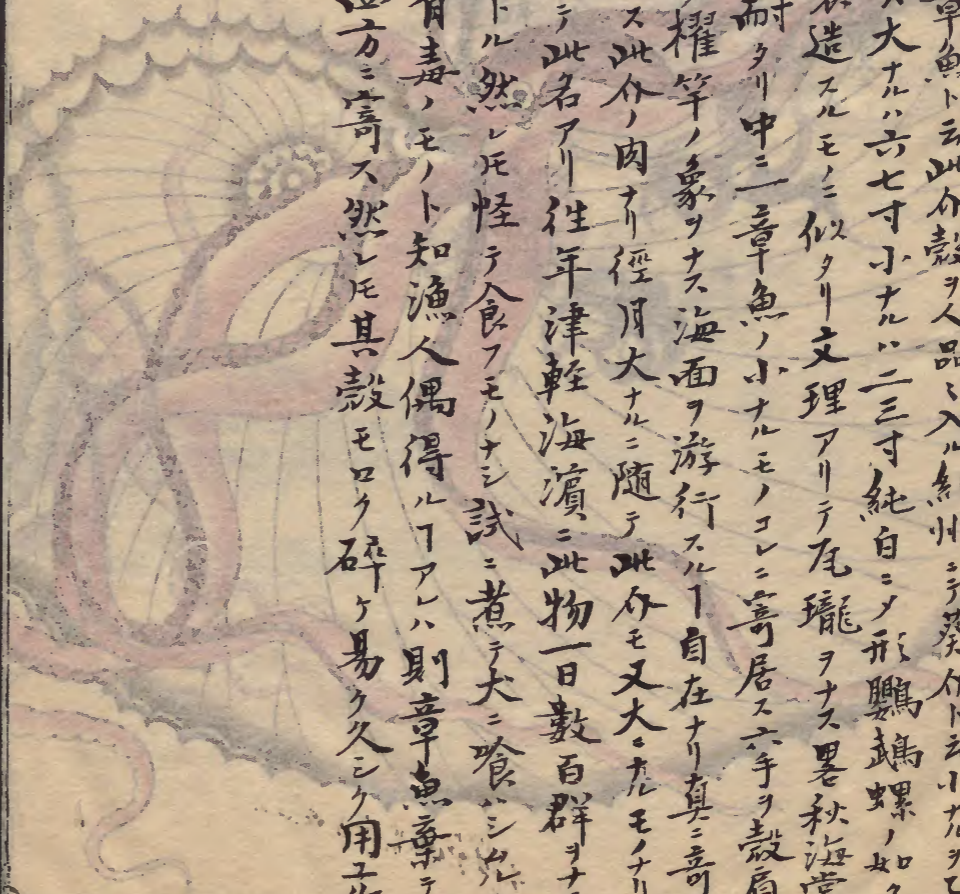 章魚ト云此介殻ヲ人品〻入ル紀州ニテ葵介ト云小ナルヲ
大ナルハ六七寸小ナルハ二三寸純白ニメ形鸚鵡螺ノ如ク
造スルモノニ似タリ文理アリテ瓦瓏ヲナス畧秋海棠
耐タリ中ニ一章魚ノ小ナルモノコレニ寄居ス六手ヲ殻肩
櫂竿ノ象ヲナス海面ヲ游行スルヿ自在ナリ真ニ奇
ス此介ノ肉ナリ徑月大ナルニ随テ此介モ又大ニナルモノナリ
テ此名アリ徃年津軽海濵ニ此物一日數百群ヲナ
トル然レ𪜈怪テ食フモノナシ試ニ煮テ犬ニ喰ハシムル
有毒ノモノト知漁人偶得ルヿアレハ則章魚棄テ
方ニ寄ス然レ𪜈其殻モロク碎ケ易ク久シク用